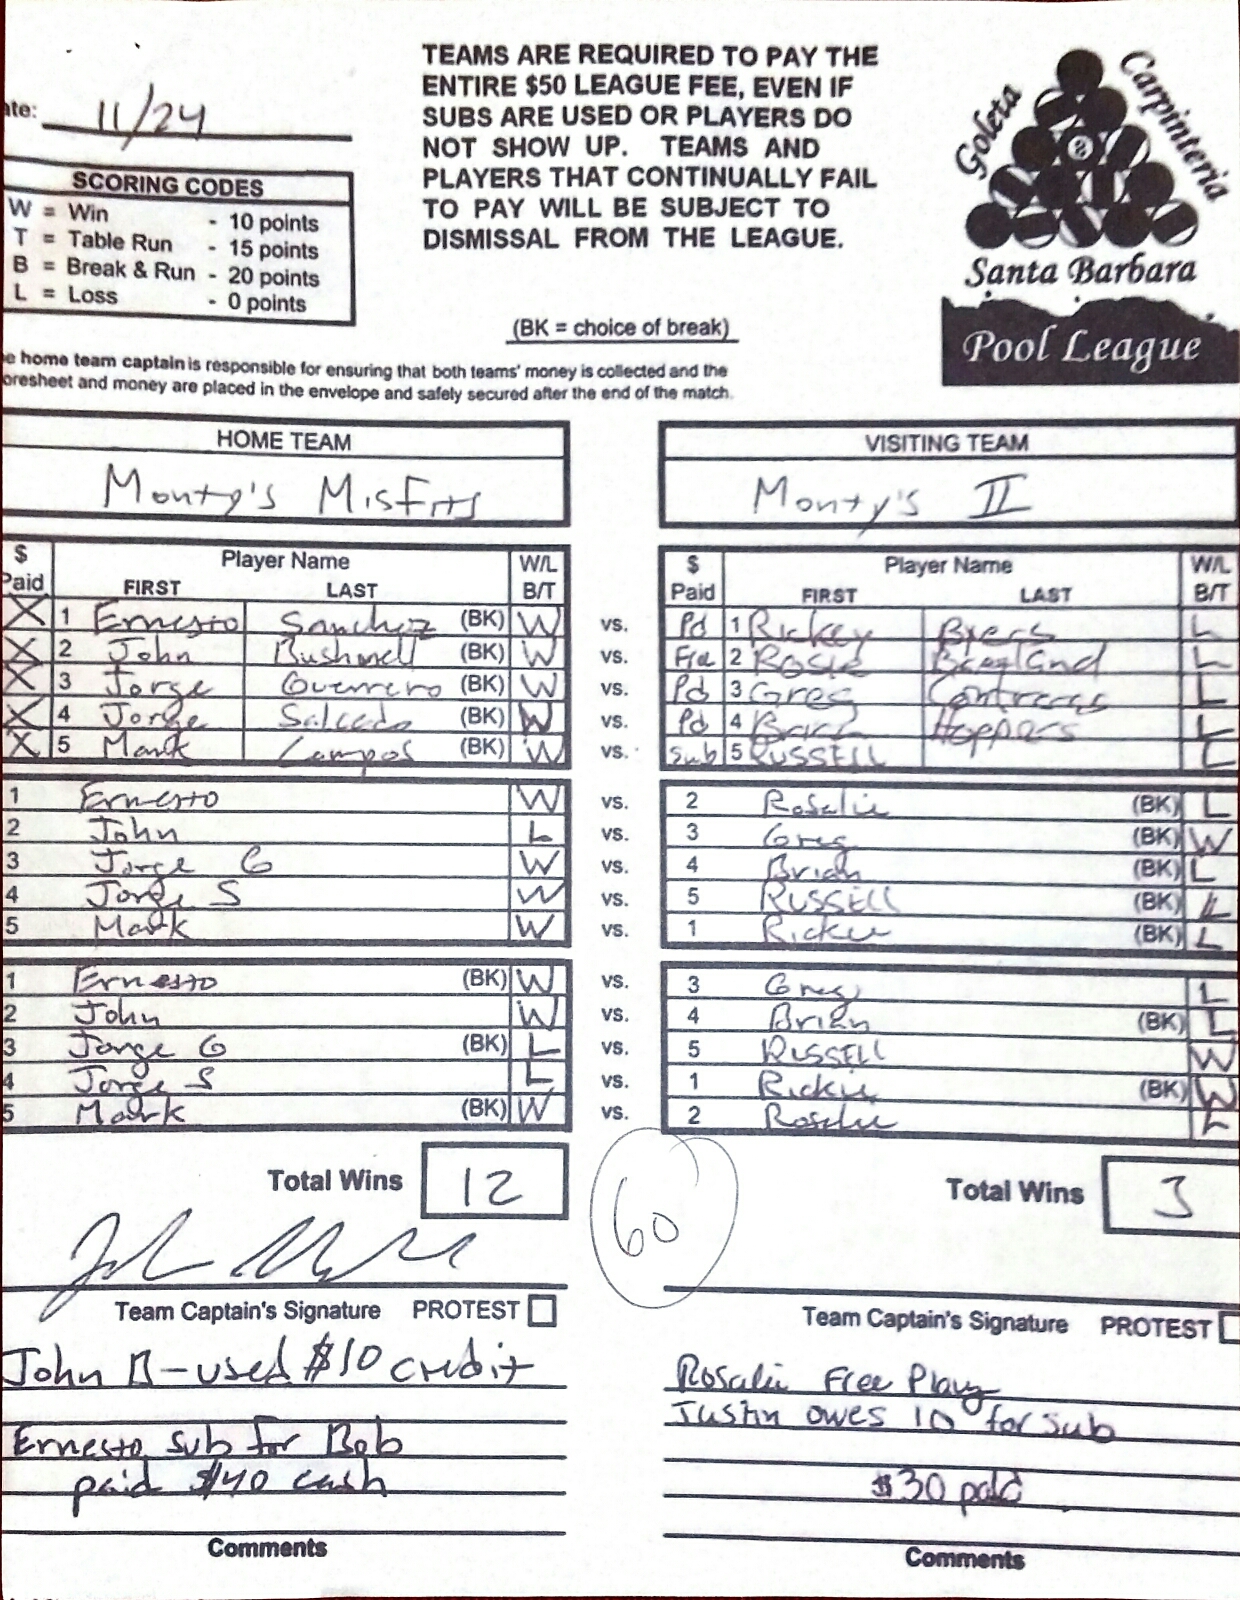 TEAMS ARE REQUIRED TO PAY THE
ENTIRE $50 LEAGUE FEE, EVEN IF
SUBS ARE USED OR PLAYERS DO
NOT SHOW UP. TEAMS AND
PLAYERS THAT CONTINUALLY FAIL
TO PAY WILL BE SUBJECT TO
DISMISSAL FROM THE LEAGUE.
ate: 11/24
SCORING CODES
W = Win - 10 points
T = Table Run - 15 points
B = Break & Run - 20 points
L = Loss - 0 points
(BK = choice of break)
Goleta
Carpinteria
8
Santa Barbara
Pool League
e home team captain is responsible for ensuring that both teams' money is collected and the
oresheet and money are placed in the envelope and safely secured after the end of the match.
HOME TEAM VISITING TEAM
Monty's Misfits Monty's II
$ Player Name W/L $ Player Name W/L
Paid FIRST LAST B/T Paid FIRST LAST B/T
X 1 Ernesto Sanchez (BK) W vs. Pd 1 Rickey Byers L
X 2 John Bushnell (BK) W vs. Fre 2 L
X 3 Jorge Guerrero (BK) W vs. Pd 3 Greg Contreras L
X 4 Jorge Salcedo (BK) W vs. Pd 4 Hoppers L
X 5 Mark Campos (BK) W vs. Sub 5 RUSSELL L
1 Ernesto W vs. 2 Rosalie (BK) L
2 John L vs. 3 Greg (BK) W
3 Jorge G W vs. 4 Brian (BK) L
4 Jorge S W vs. 5 RUSSELL (BK) L
5 Mark W vs. 1 Rickie (BK) L
1 Ernesto (BK) W vs. 3 Greg L
2 John W vs. 4 Brian (BK) L
3 Jorge G (BK) L vs. 5 RUSSELL W
4 Jorge S L vs. 1 Rickie (BK) W
5 Mark (BK) W vs. 2 Rosalie L
Total Wins 12 60 Total Wins 3
Team Captain's Signature PROTEST Team Captain's Signature PROTEST
John B - used $10 credit
Ernesto sub for Bob
paid $40 cash
Comments
Rosalie Free Play
Justin owes 10 for sub
$30 paid
Comments